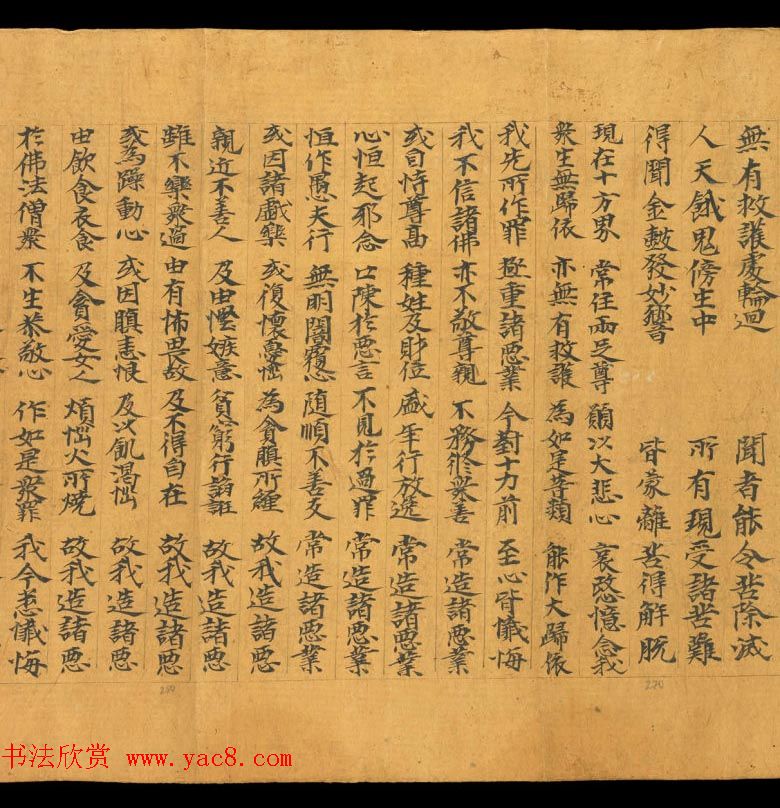 無有救護處輪迴 聞者能令苦除滅
人天餓鬼傍生中 所有現受諸苦難
得聞金鼓發妙響 皆蒙離苦得解脫
現在十方界 常住兩足尊 願以大悲心 哀愍憶念我
衆生無歸依 亦無有救護 為如是等類 能作大歸依
我先所作罪 極重諸惡業 今對十力前 至心皆懺悔
我不信諸佛 亦不敬尊親 不務修衆善 常造諸惡業
或自恃尊高 種姓及財位 盛年行放逸 常造諸惡業
心恒起邪念 口陳於惡言 不見於過罪 常造諸惡業
恒作愚夫行 無明闇覆心 随順不善友 常造諸惡業
或因諸戲樂 或復懷憂惱 為貪瞋所纏 故我造諸惡
親近不善人 及由慳嫉意 貧窮行諂誑 故我造諸惡
雖不樂衆過 由有怖畏故 及不得自在 故我造諸惡
或為躁動心 或因瞋恚恨 及以飢渴惱 故我造諸惡
由飲食衣食 及貪愛女人 煩惱火所燒 故我造諸惡
於佛法僧衆 不生恭敬心 作如是衆罪 我今悉懺悔
270
280
书法欣赏 www.yac8.com